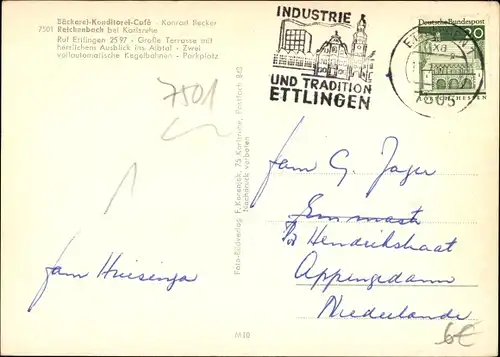 Bäckerei-Konditorei-Café - Konrad Becker
7501 Reichenbach bei Karlsruhe
Ruf Ettlingen 2597 - Große Terrasse mit
herrlichem Ausblick ins Albtal - Zwei
vollautomatische Kegelbahnen - Parkplatz
7501
INDUSTRIE
UND TRADITION
ETTLINGEN
Deutsche Bundespost
20
LORSCH/HESSEN
Foto-Bildverlag F. Korenjak, 75 Karlsruhe, Postfach 843
Nachdruck verboten
M10
fam G. Jager
Hendrikstraat
Appingedam
Niederlande
fam Huisinga
6€